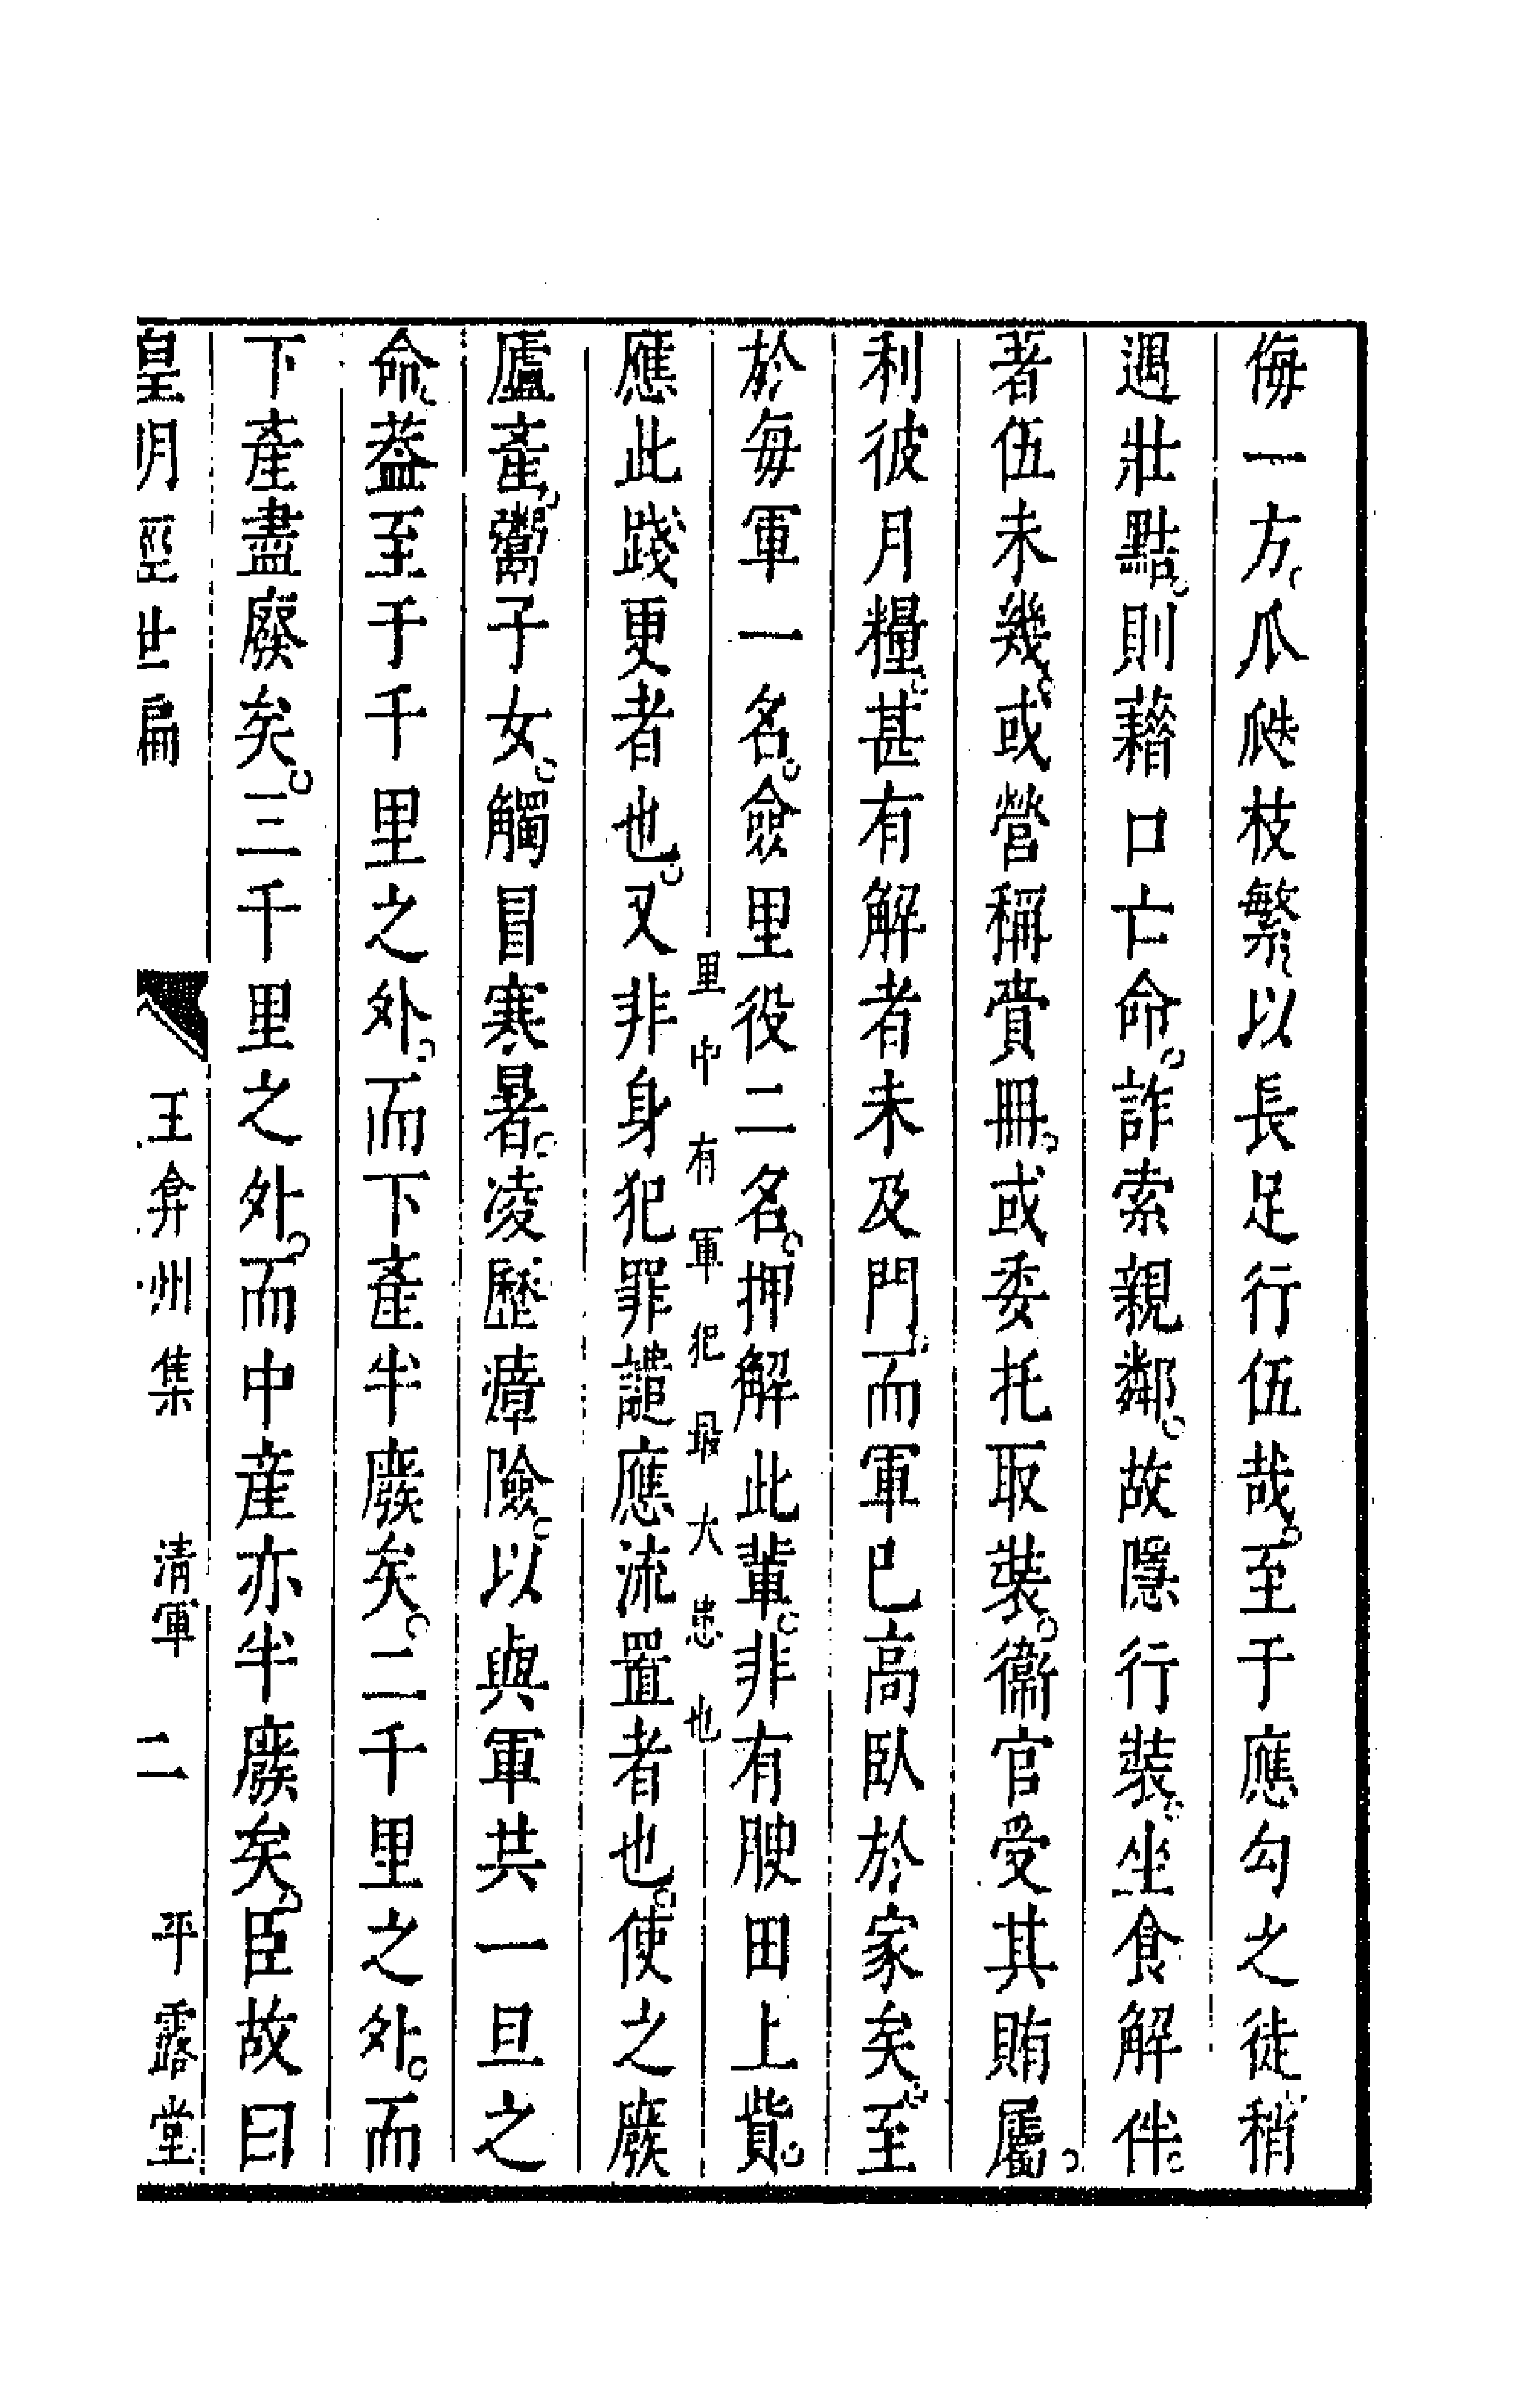 侮一方爪𤓰枝繁以長足行伍哉至于應勾之徒稍
遇壯黠則藉口亡命詐索親鄰故隱行裝坐食解伴
著伍未幾或營稱賫冊或委托取裝衞官受其賄屬
利彼月糧甚有解者未及門而軍巳高臥於家矣至
於每軍一名僉里役二名押解此軰非有腴田上貲
里中有軍犯最大患也
應此踐更者也又非身犯罪譴應流置者也使之廢
廬產鬻子女觸冒寒暑凌歷瘴險以與軍共一旦之
命葢至于千里之外而下產半廢矣二千里之外而
下產盡廢矣三千里之外而中産亦半廢矣臣故曰
皇明經世扁 王弇州集 清軍 二 平露堂